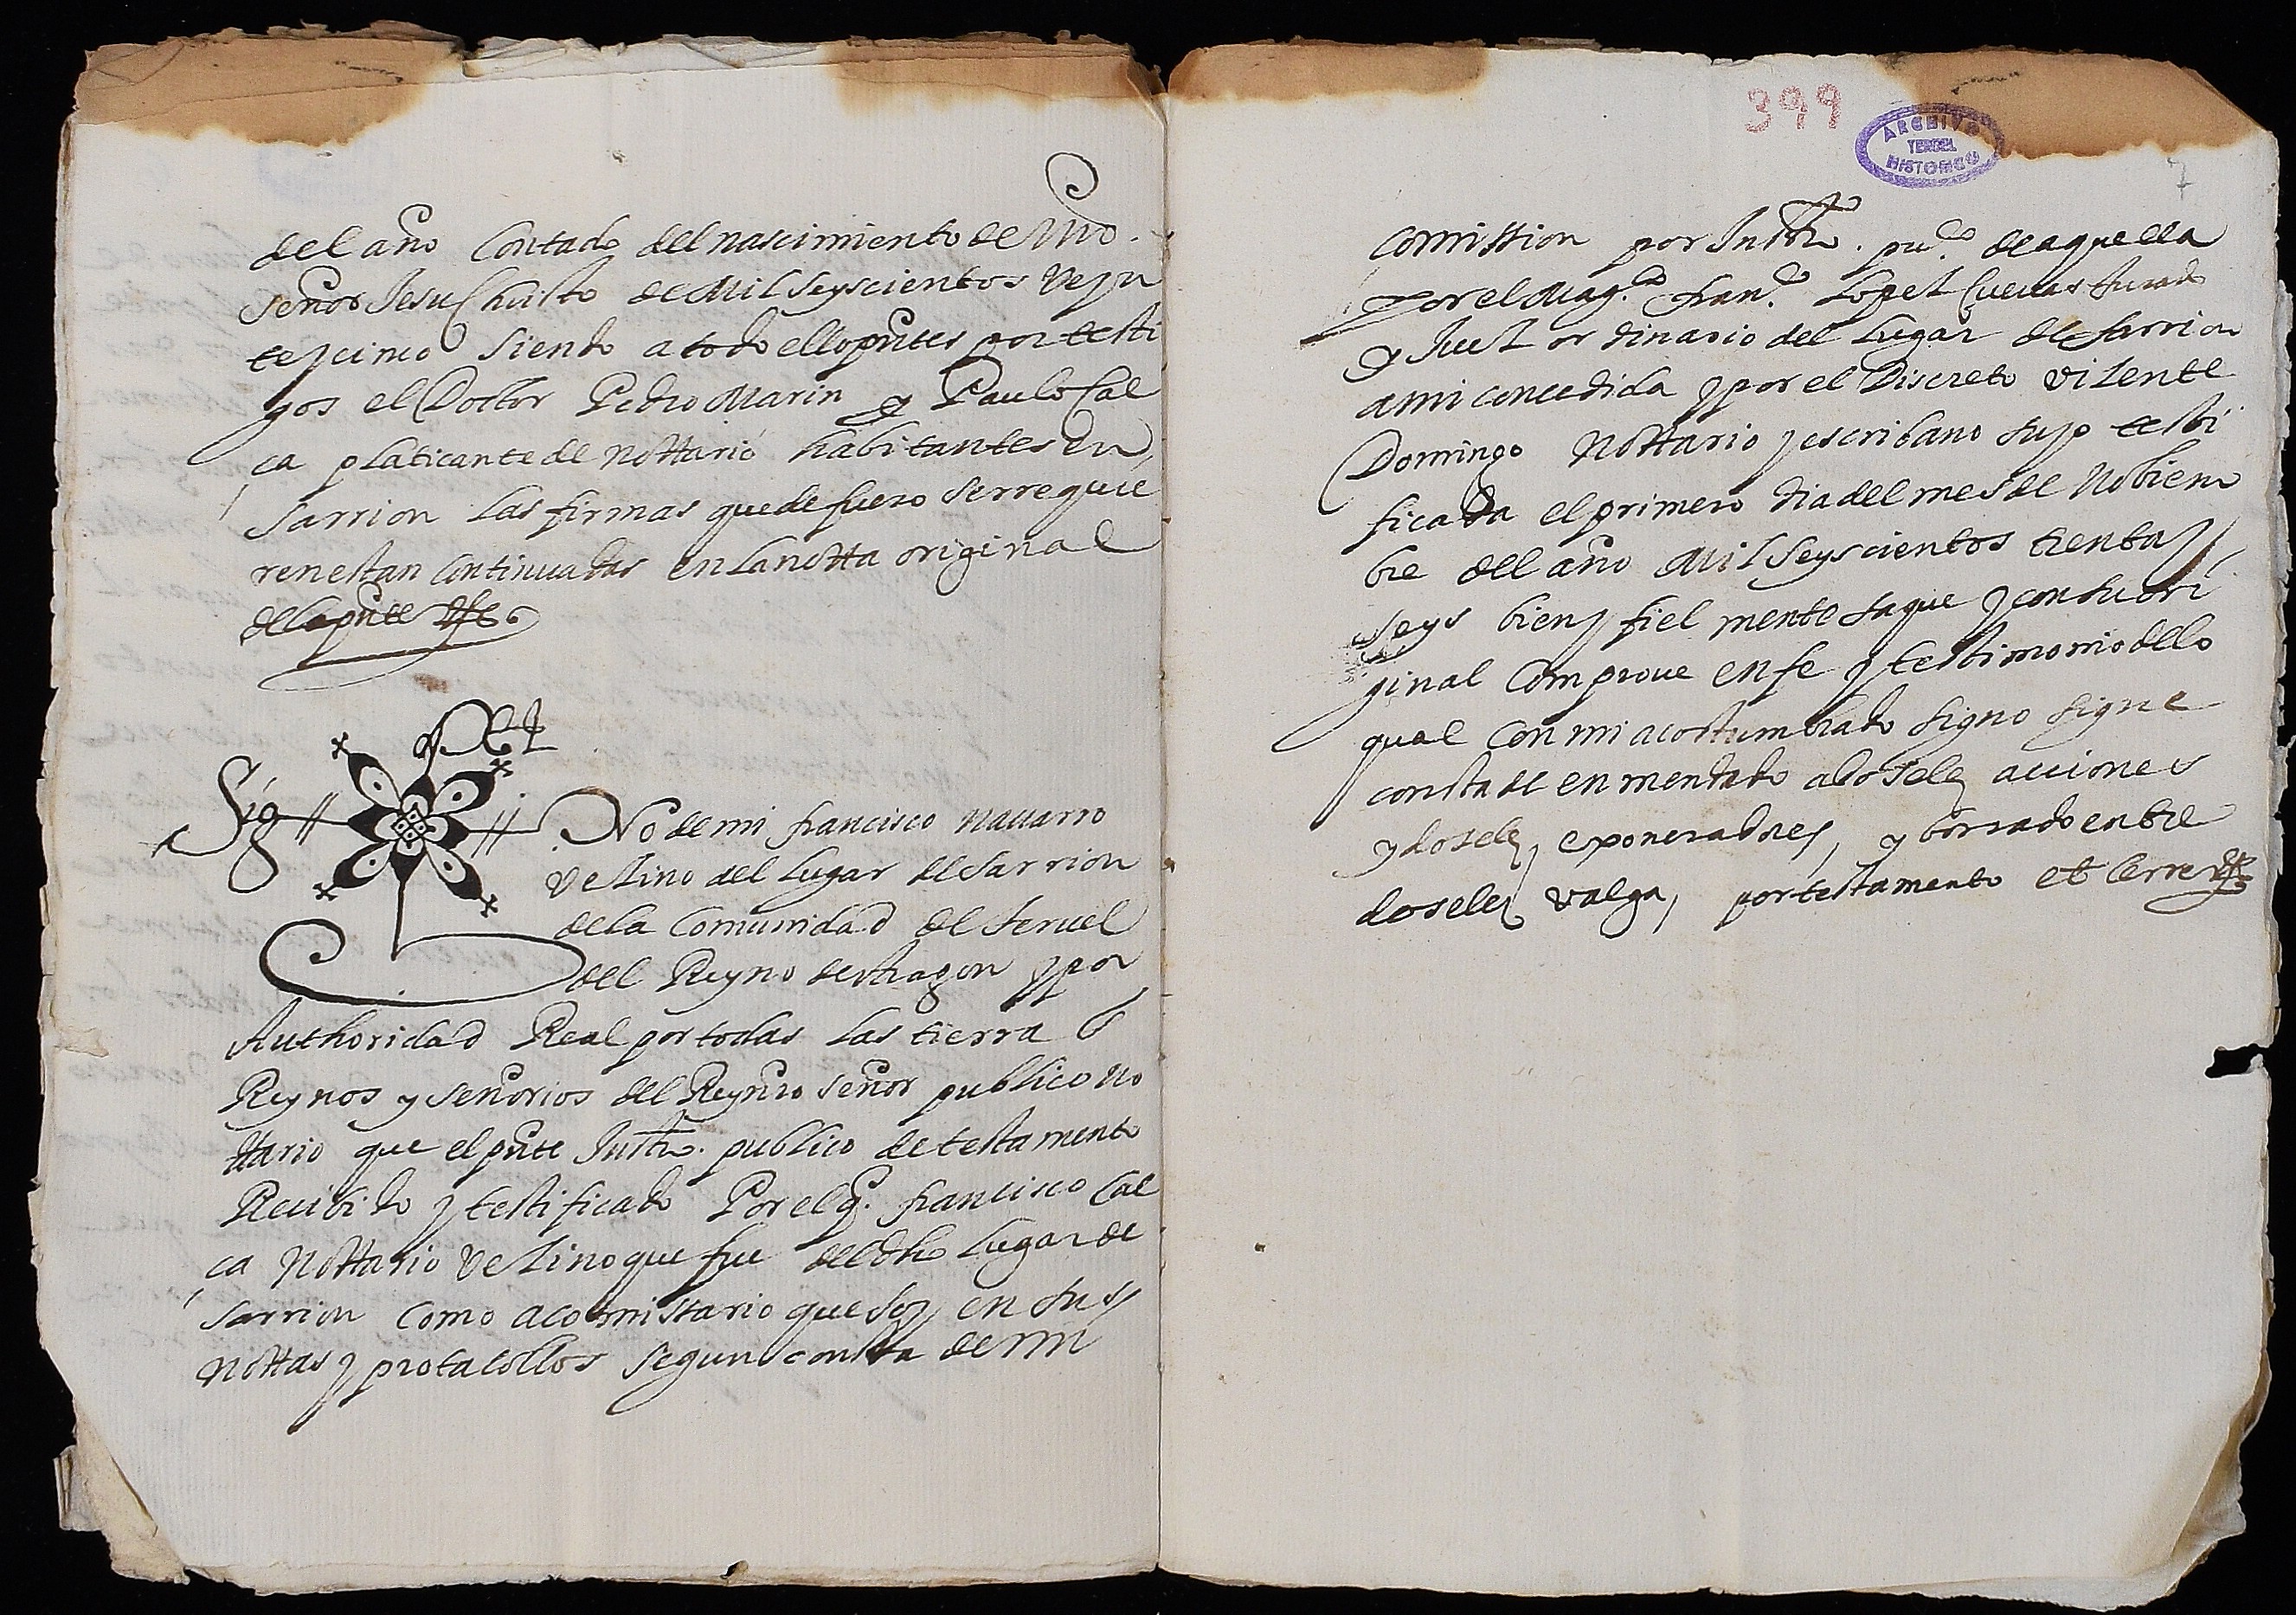 del año Contado del nascimiento de nrõ.
señor Jesu Christo de Mil Seyscientos veyn
teycinco siendo a todo ello pñtes por testi
gos el Doctor Pedro Marin y Paulo Cal
ça platicante de Nottario habitantes en
Sarrion las firmas que de fuero se requie
ren estan continuadas en la notta original
de la pñte
Sig No de mi francisco Nauarro
vezino del Lugar de Sarrion
de la Comunidad de Teruel
del Reyno de Aragon y por
Authoridad Real por todas las tierras
Reynos y señorios del Rey nrõ señor publico no
ttario que el pñte Instr. publico de testamento
Recibido y testificado Por el q. francisco Cal
ça Nottario vezino que fue del dho Lugar de
Sarrion como acomissario que soy en sus
nottas y protacollos segun consta de mi
399
ARCHIVO
TERUEL
HISTORICO
7
comission por Instr. puco. de aquella
por el Magco. franco. Lopez Cueuas Jurado
y Juez ordinario del Lugar de Sarrion
a mi concedida y por el Discreto Vizente
Domingo Nottario y escribano suyo testi
ficada el primero dia del mes de Nobiem
bre del año Mil Seyscientos trenta y
seys bien y fielmente saque y con su ori
ginal comprove en fe y testimonio de lo
qual con mi acostumbrado signo signe
consta de enmendado acciones
y exoneradores, y borrado entre
valga, por testamento et cerre